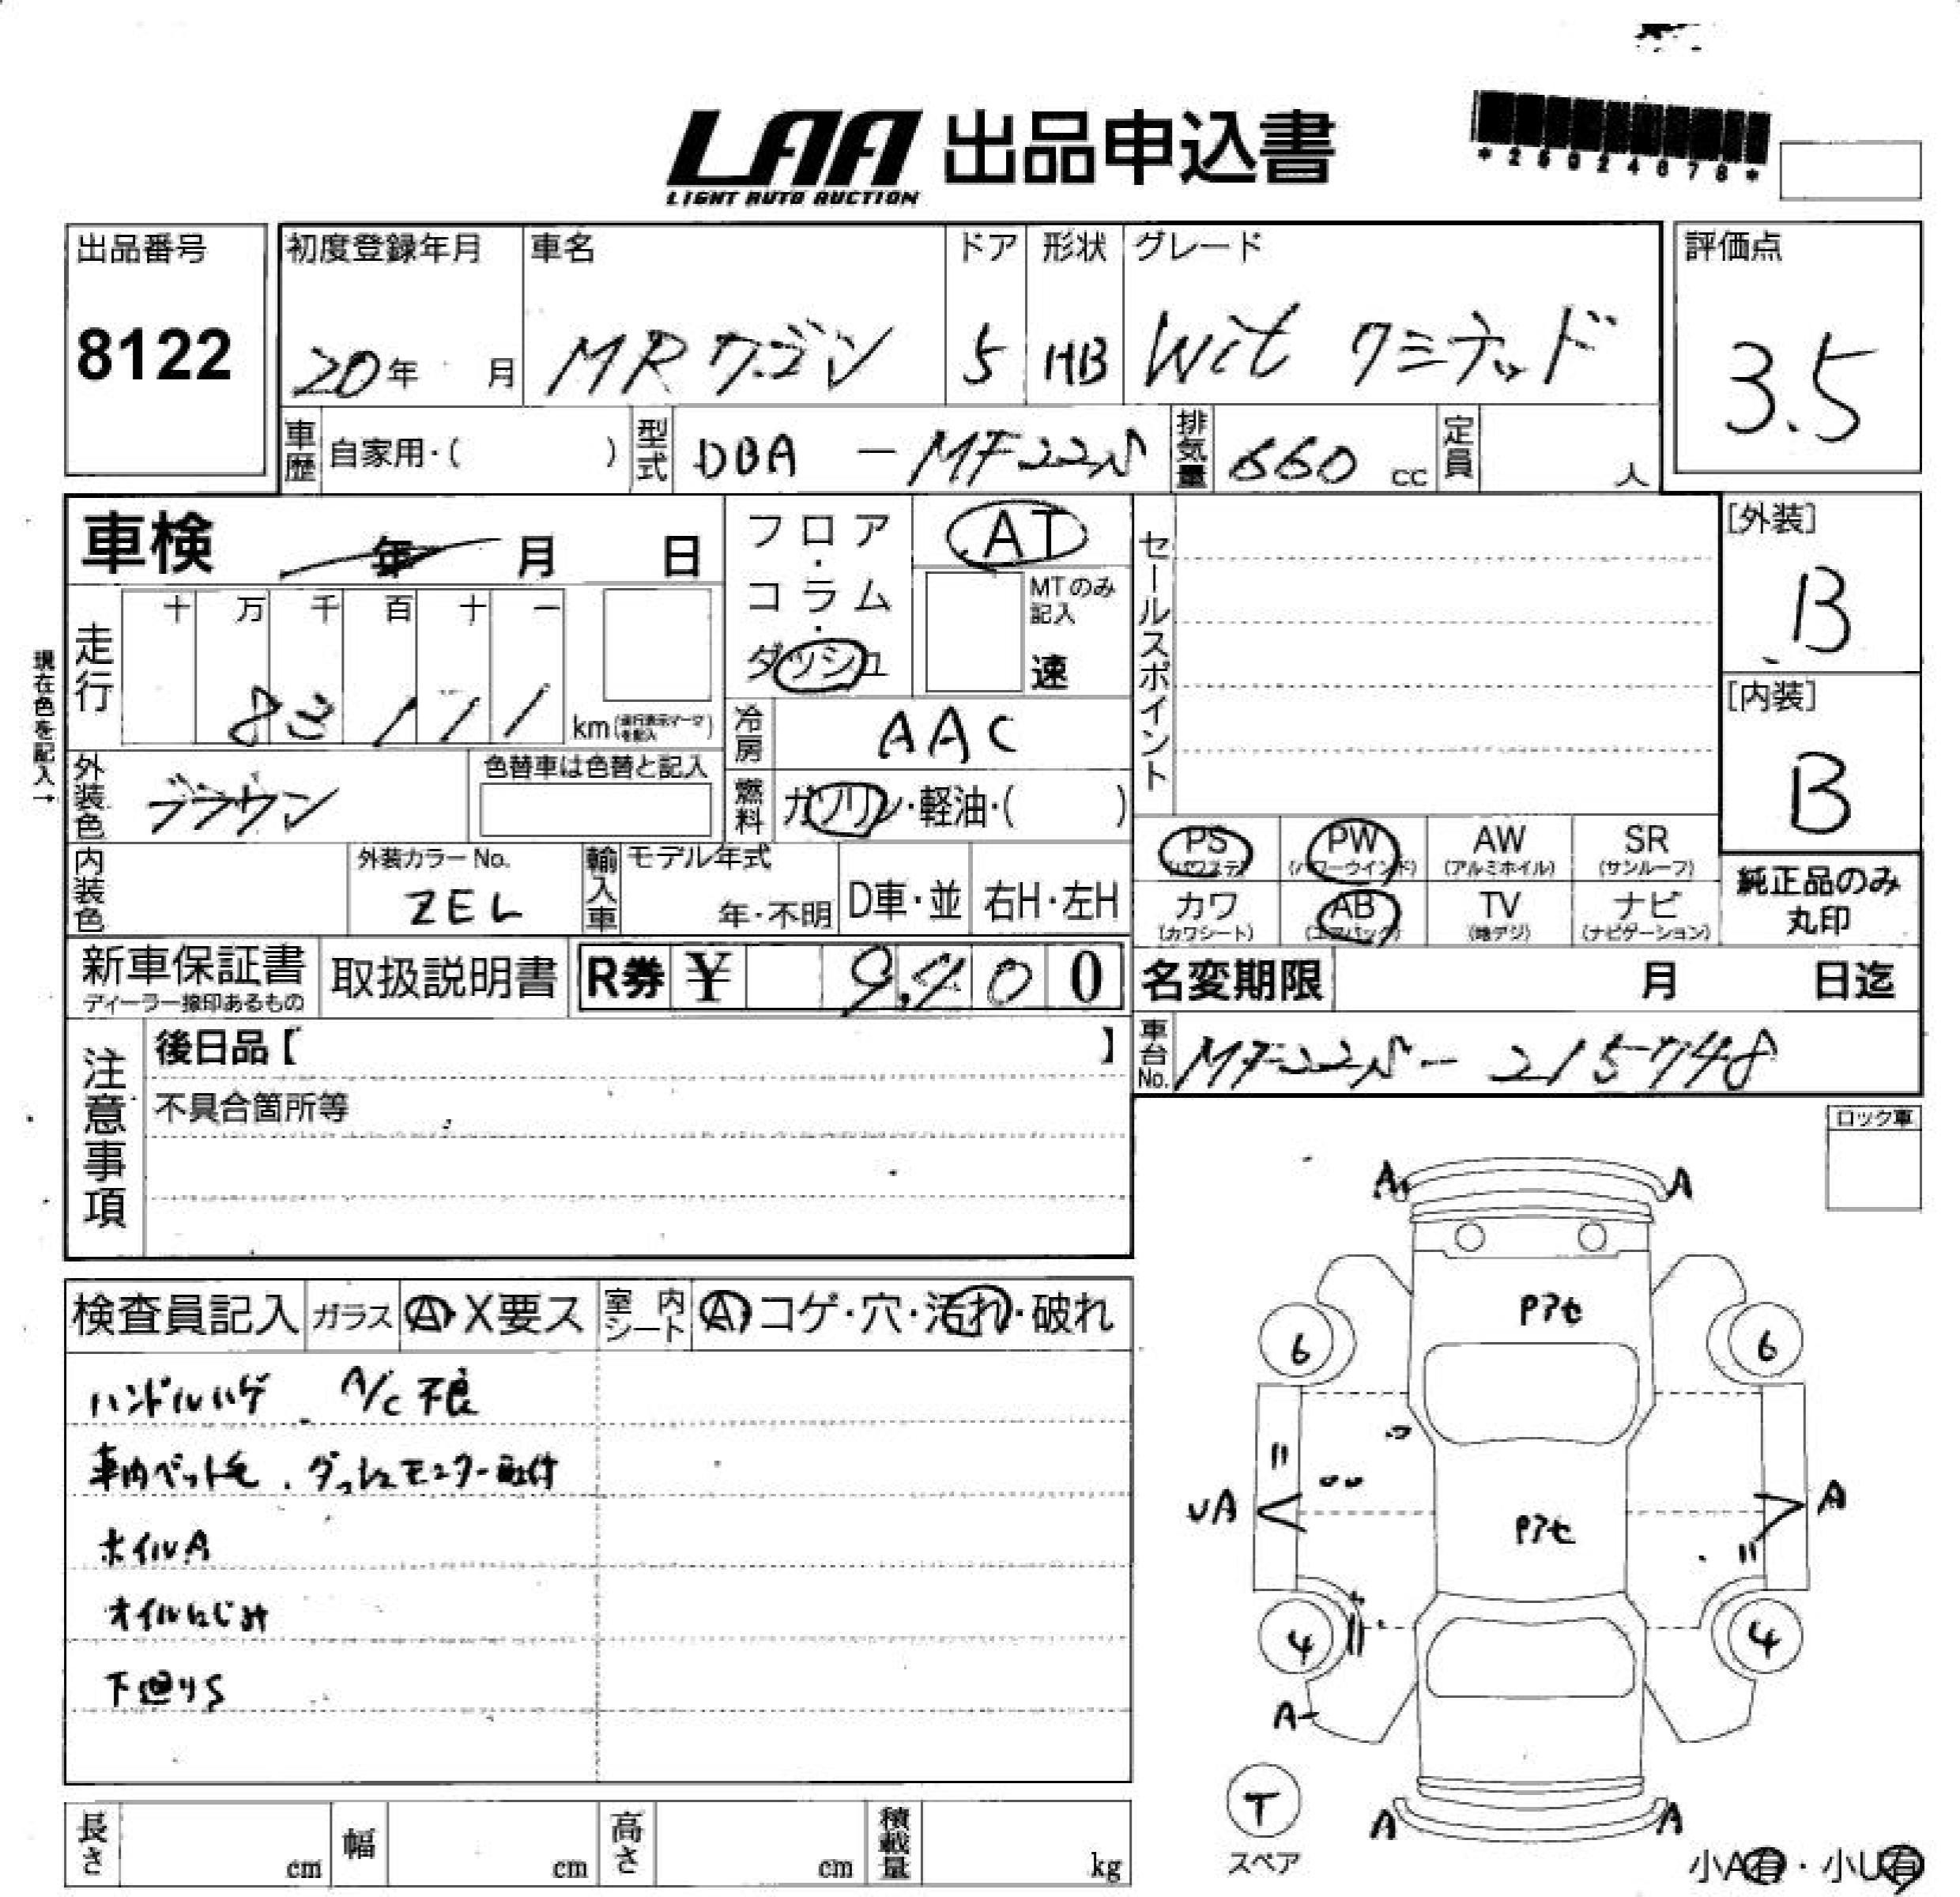 LAA 出品申込書
LIGHT AUTO AUCTION
*25024678*
出品番号
8122
初度登録年月
20年 月
車名
MRワゴン
ドア
5
形状
HB
グレード
Wit リミテッド
評価点
3.5
車歴 自家用・( )
型式 DBA - MF22S
排気量 660 cc
定員 人
車検 年 月 日
フロア・コラム・ダッシュ
AT
MTのみ記入
速
セールスポイント
[外装]
B
[内装]
B
現在色を記入→
走行
十 万 千 百 十 一
83111 km
冷房 AAC
外装色 ブラウン
色替車は色替と記入
燃料 ガソリン・軽油・( )
PS (パワステ)
PW (パワーウインド)
AW (アルミホイル)
SR (サンルーフ)
内装色
外装カラーNo.
ZEL
輸入車 モデル年式
年・不明
D車・並
右H・左H
カワ (カワシート)
AB (エアバック)
TV (地デジ)
ナビ (ナビゲーション)
純正品のみ
丸印
新車保証書
ディーラー捺印あるもの
取扱説明書
R券 ¥ 9,400
名変期限 月 日迄
注意事項
後日品【 】
車台No. MF22S - 215748
不具合箇所等
ロック車
検査員記入 ガラス A・X要ス 室内シート A・コゲ・穴・汚れ・破れ
ハンドルハゲ A/C不良
車内ペット毛、ダッシュモニター取付
ホイルA
オイルにじみ
下廻りS
A A
Pアセ
6 6
UA A
Pアセ
4 4
A
T
スペア
A A
小A有・小U有
長さ cm
幅 cm
高さ cm
積載量 kg